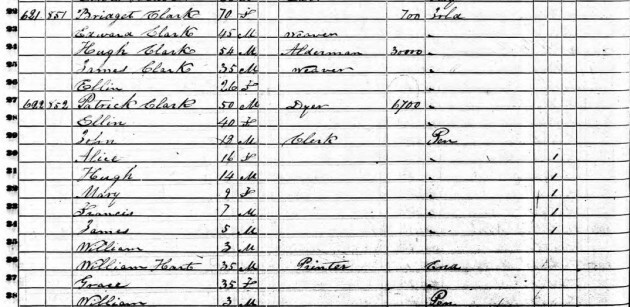 22 621 851 Bridget Clark 70 F 700 Irld
23 Edward Clark 45 M Weaver "
24 Hugh Clark 54 M Alderman 30000 "
25 James Clark 35 M Weaver "
26 Ellin 26 F "
27 622 852 Patrick Clark 50 M Dyer 6700 "
28 Ellin 40 F "
29 John 18 M Clerk Pen
30 Alice 16 F " 1
Hugh 14 M " 1
Mary 9 F " 1
Francis 7 M " 1
James 5 M " 1
35 William 3 M "
William Hart 35 M Printer
Grace 35 F "
38 William 3 M Pen